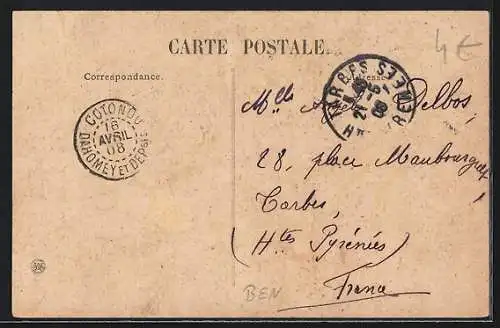 CARTE POSTALE
Correspondance.
Adresse
COTONOU
16
AVRIL
08
DAHOMEY ET DEP
TARBES
08
Hts PYRENEES
Melle
Delbos,
28, place Maubourguet
Tarbes
(Htes Pyrénées)
France
BEN
4€